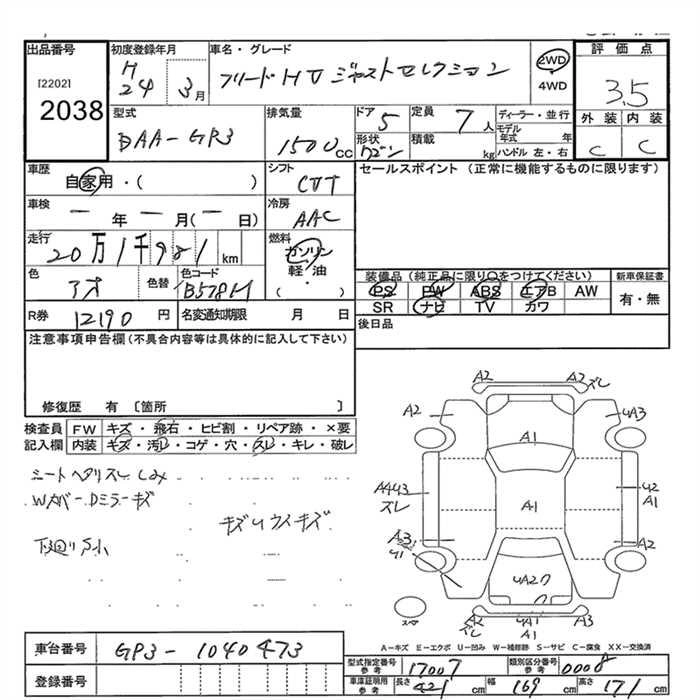 出品番号 初度登録年月 車名・グレード 評価点
[2202] H24 3月 フリードHV ジャストセレクション 2WD 4WD 3.5
2038
型式 排気量 ドア 定員 ディーラー・並行 外装 内装
DAA-GP3 1500cc 5 7人 モデル年式 年 C C
形状 ワゴン 積載 kg ハンドル 左・右
車歴 自家用・( ) シフト CVT セールスポイント (正常に機能するものに限ります)
車検 ー年ー月(ー日) 冷房 AAC
走行 20万1千981km 燃料 ガソリン 軽・油 ( )
色 アオ 色替 色コード B578M
装備品 (純正品に限り○をつけてください) 新車保証書
PS PW ABS エアB AW 有・無
SR ナビ TV カワ
R券 12190円 名変通知期限 月 日 後日品
注意事項申告欄(不具合内容等は具体的に記入して下さい)
修復歴 有 〔箇所 〕
検査員 FW キズ・飛石・ヒビ割・リペア跡・×要
記入欄 内装 キズ・汚レ・コゲ・穴・スレ・キレ・破レ
シートヘタリスレ しみ
Wカバー Dミラーキズ
キズUウスキズ
下廻りS小
A2 A2 ズレ
A2 A1 4A3
A443 ズレ A1 42 A1
A3 41 A2
4A20
スペア ズレ A2 4A1 A3
A-キズ E-エクボ U-凹み W-補修跡 S-サビ C-腐食 XX-交換済
車台番号 GP3-1040473
登録番号
型式指定番号 参考 17007 類別区分番号 参考 0008
車庫証明用 参考 長さ 421cm 幅 169cm 高さ 171cm